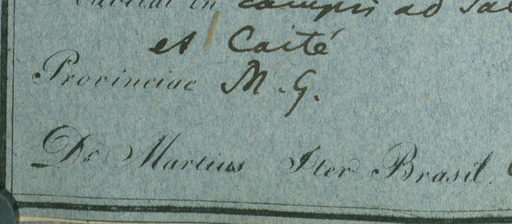 Habitat in campis ad Sa
et Caité
Provinciae M. G.
Dr Martius Iter Brasil.